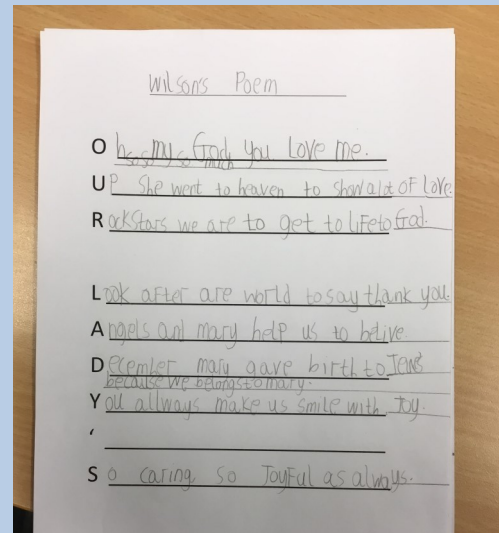 Wilson's Poem
Oh my God you Love me.
so so so much
UP she went to heaven to show alot of Love
Rockstars we are to get to life to God.
Look after are world to say thank you.
Angels and mary help us to belive
December mary gave birth to Jesus
because we belongs to mary.
You allways make us smile with Joy.
'
So caring so Joyful as always.